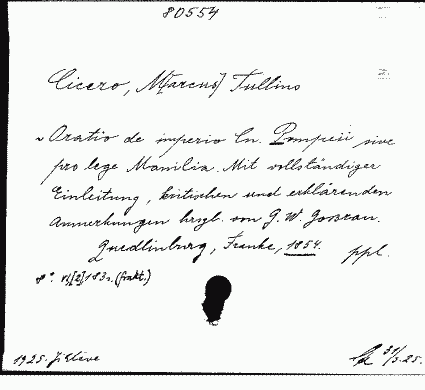 80554
Cicero, M[arcus] Tullius
Oratio de imperio Cn. Pompeii sive
pro lege Manilia. Mit vollständiger
Einleitung, kritischen und erklärenden
Anmerkungen hrsg. von G. W. Gossrau.
Quedlinburg, Franke, 1854. ppl.
8°. VI,[2]183 s. (frakt.)
1925.